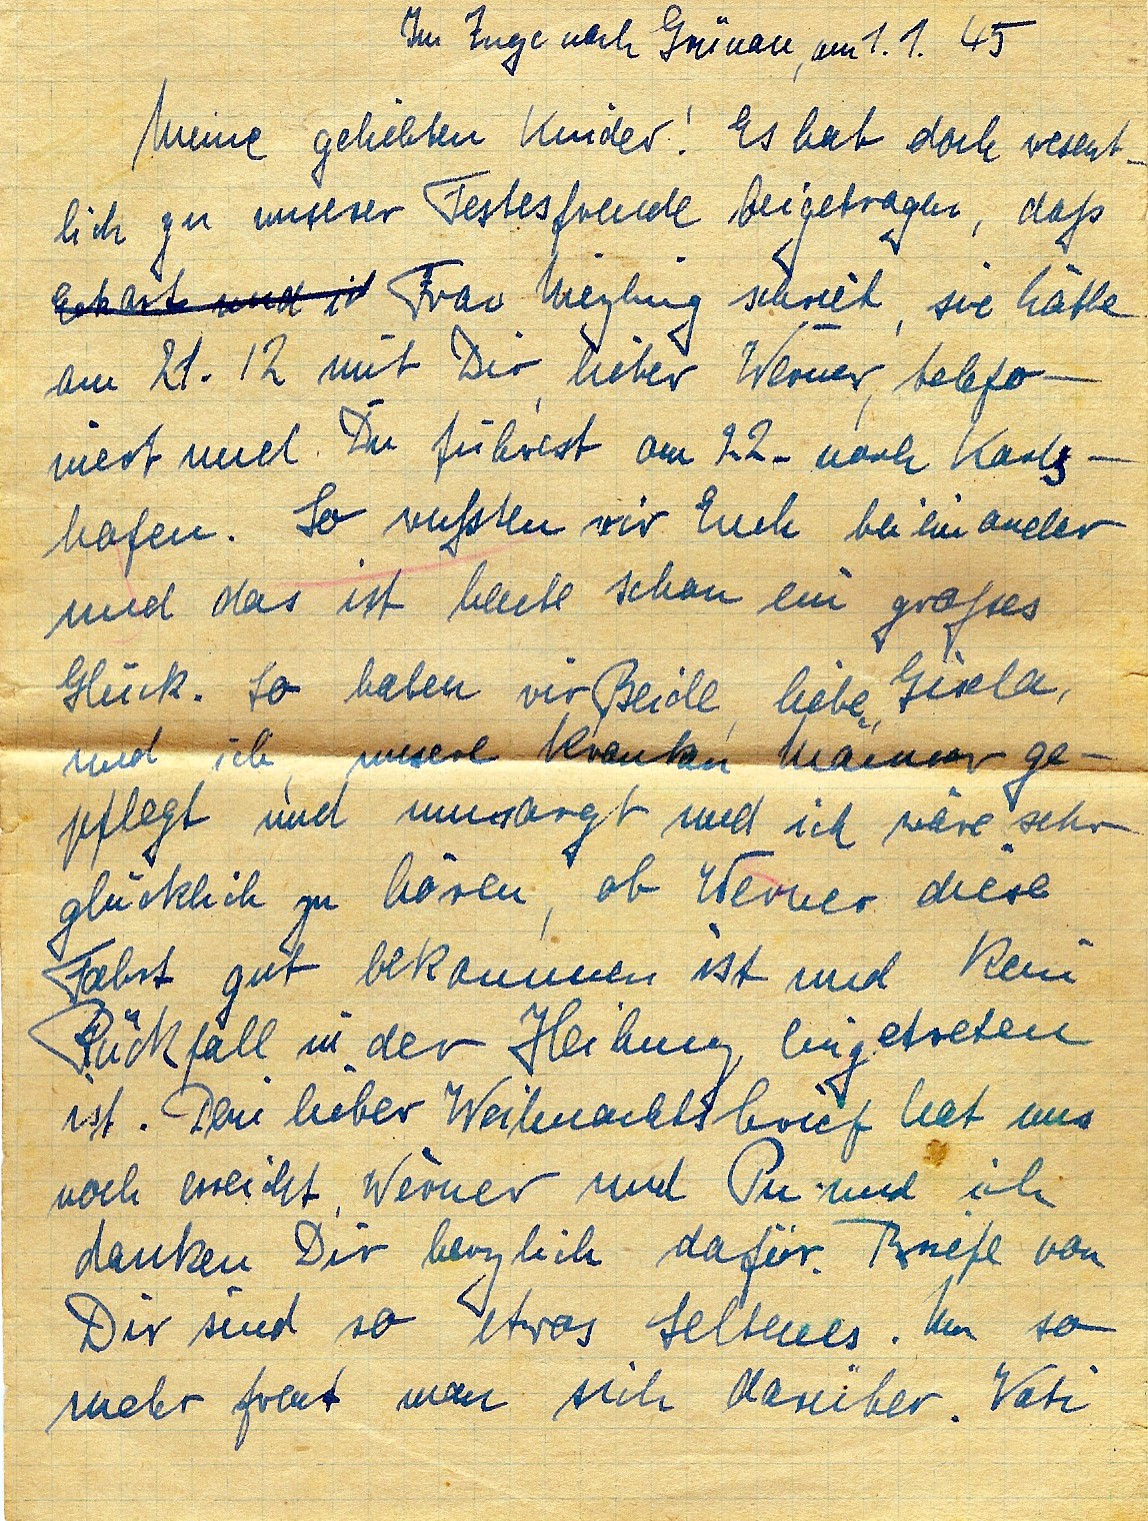 Im Zuge nach Grünau, am 1. 1. 45
Meine geliebten Kinder! Es hat doch wesent-
lich zu unserer Festesfreude beigetragen, daß
Eckart und ich Frau schrieb, sie hätte
am 21. 12 mit Dir, lieber Werner, telefo-
niert und Du führest am 22. nach Karls-
hafen. So wußten wir Euch beieinander
und das ist heute schon ein großes
Glück. So haben wir Beide, liebe Gisela,
und ich, unsere kranken Männer ge-
pflegt und umsorgt und ich wäre sehr
glücklich zu hören, ob Werner diese
Fahrt gut bekommen ist und kein
Rückfall in der Heilung eingetreten
ist. Dein lieber Weihnachtsbrief hat uns
noch erreicht, Werner und Pu und ich
danken Dir herzlich dafür. Briefe von
Dir sind so etwas Seltenes. Um so
mehr freut man sich darüber. Vati